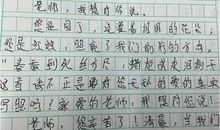 老师，我想对你说
您是园丁，浇灌着祖国的花朵；
您是蜡烛，照亮了我们前行的方向，
"春蚕到死丝方尽，蜡炬成灰泪始干
这首诗不正是要对您无私的爱的真实
写照吗？亲爱的老师，我想对您说：
老师，您辛苦了！清晨，当我